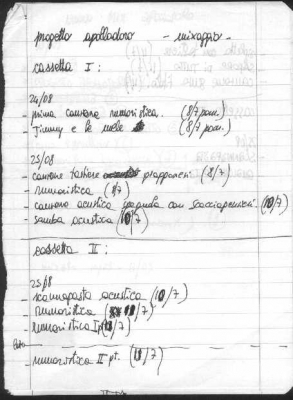 progetto apollodoro - mixaggio -
cassetta I :
24/08
- prima canzone rumoristica. (8/7 pom.)
- Jimmy e le mele (8/7 pom.)
25/08
- canzone (8/7)
- rumoristica (8/7)
- canzone acustica con scacciapensieri (10/7)
- samba acustica (10/7)
cassetta II :
25/08
- acustica (10/7)
- rumoristica (10/7)
- rumoristica I pt. (11/7)
- rumoristica II pt. (11/7)